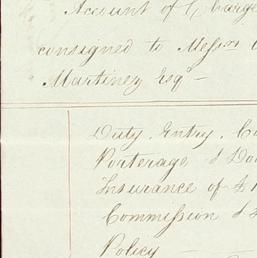 Account of Charges
consigned to Messrs
Martinez Esqr
Duty, Entry, Co
Porterage & Do
Insurance of £1
Commission &
Policy